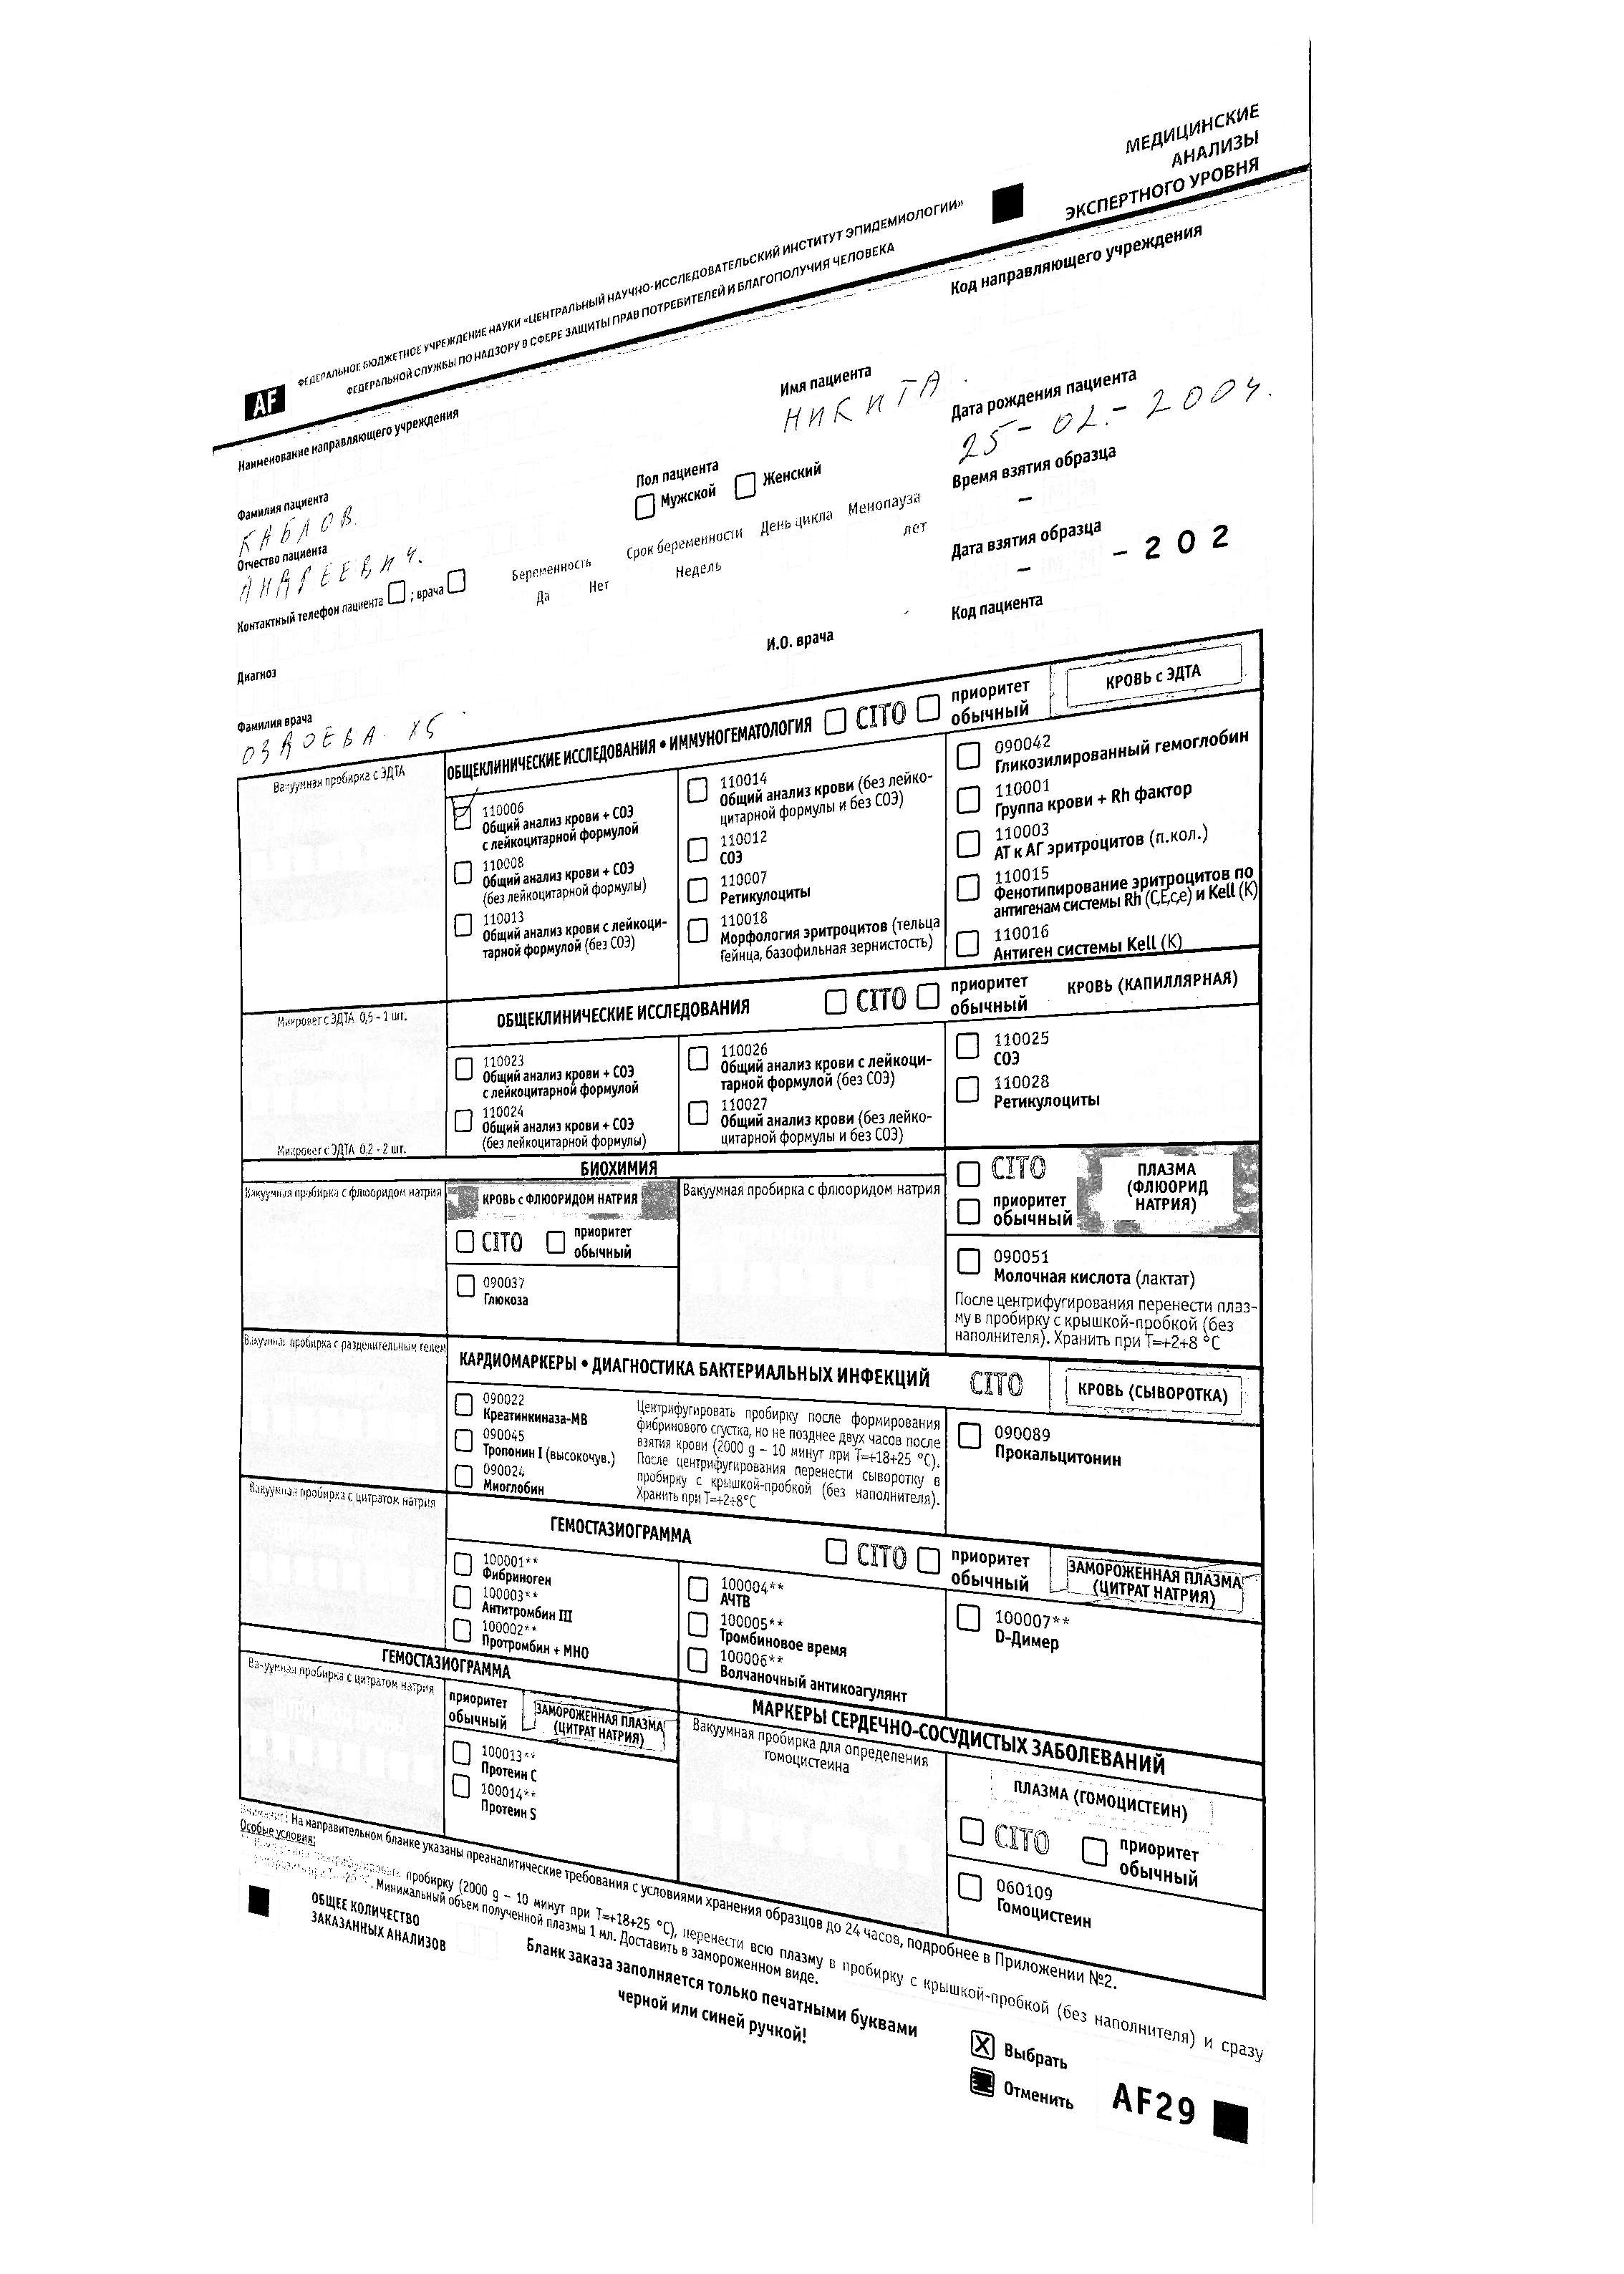 МЕДИЦИНСКИЕ
АНАЛИЗЫ
ЭКСПЕРТНОГО УРОВНЯ
AF
ФЕДЕРАЛЬНОЕ БЮДЖЕТНОЕ УЧРЕЖДЕНИЕ НАУКИ «ЦЕНТРАЛЬНЫЙ НАУЧНО-ИССЛЕДОВАТЕЛЬСКИЙ ИНСТИТУТ ЭПИДЕМИОЛОГИИ»
ФЕДЕРАЛЬНОЙ СЛУЖБЫ ПО НАДЗОРУ В СФЕРЕ ЗАЩИТЫ ПРАВ ПОТРЕБИТЕЛЕЙ И БЛАГОПОЛУЧИЯ ЧЕЛОВЕКА
Наименование направляющего учреждения
Код направляющего учреждения
Фамилия пациента
КАБЛОВ.
Имя пациента
НИКИТА.
Отчество пациента
АНДРЕЕВИЧ.
Пол пациента
Мужской Женский
Дата рождения пациента
25-02.-2004.
Время взятия образца
–
Контактный телефон пациента ; врача
Беременность
Да Нет
Срок беременности
Недель
День цикла
Менопауза
лет
Дата взятия образца
– –202
Диагноз
Код пациента
Фамилия врача
ОЗДОЕВА Х5
И.О. врача
Вакуумная пробирка с ЭДТА
ОБЩЕКЛИНИЧЕСКИЕ ИССЛЕДОВАНИЯ • ИММУНОГЕМАТОЛОГИЯ
CITO
приоритет
обычный
КРОВЬ с ЭДТА
110006
Общий анализ крови + СОЭ
с лейкоцитарной формулой
110008
Общий анализ крови + СОЭ
(без лейкоцитарной формулы)
110013
Общий анализ крови с лейкоци-
тарной формулой (без СОЭ)
110014
Общий анализ крови (без лейко-
цитарной формулы и без СОЭ)
110012
СОЭ
110007
Ретикулоциты
110018
Морфология эритроцитов (тельца
Гейнца, базофильная зернистость)
090042
Гликозилированный гемоглобин
110001
Группа крови + Rh фактор
110003
АТ к АГ эритроцитов (п.кол.)
110015
Фенотипирование эритроцитов по
антигенам системы Rh (C,E,c,e) и Kell (K)
110016
Антиген системы Kell (K)
Микровет с ЭДТА 0,5 - 1 шт.
ОБЩЕКЛИНИЧЕСКИЕ ИССЛЕДОВАНИЯ
CITO
приоритет
обычный
КРОВЬ (КАПИЛЛЯРНАЯ)
110023
Общий анализ крови + СОЭ
с лейкоцитарной формулой
110024
Общий анализ крови + СОЭ
(без лейкоцитарной формулы)
110026
Общий анализ крови с лейкоци-
тарной формулой (без СОЭ)
110027
Общий анализ крови (без лейко-
цитарной формулы и без СОЭ)
110025
СОЭ
110028
Ретикулоциты
Микровет с ЭДТА 0.2 - 2 шт.
БИОХИМИЯ
Вакуумная пробирка с флюоридом натрия
КРОВЬ с ФЛЮОРИДОМ НАТРИЯ
CITO
приоритет
обычный
090037
Глюкоза
Вакуумная пробирка с флюоридом натрия
CITO
приоритет
обычный
ПЛАЗМА
(ФЛЮОРИД
НАТРИЯ)
090051
Молочная кислота (лактат)
После центрифугирования перенести плаз-
му в пробирку с крышкой-пробкой (без
наполнителя). Хранить при Т=+2÷8 °С
Вакуумная пробирка с разделительным гелем
КАРДИОМАРКЕРЫ • ДИАГНОСТИКА БАКТЕРИАЛЬНЫХ ИНФЕКЦИЙ
CITO
КРОВЬ (СЫВОРОТКА)
090022
Креатинкиназа-МВ
090045
Тропонин I (высокочув.)
090024
Миоглобин
Центрифугировать пробирку после формирования
фибринового сгустка, но не позднее двух часов после
взятия крови (2000 g – 10 минут при Т=+18÷25 °С).
После центрифугирования перенести сыворотку в
пробирку с крышкой-пробкой (без наполнителя).
Хранить при Т=+2÷8°С
090089
Прокальцитонин
Вакуумная пробирка с цитратом натрия
ГЕМОСТАЗИОГРАММА
CITO
приоритет
обычный
ЗАМОРОЖЕННАЯ ПЛАЗМА
(ЦИТРАТ НАТРИЯ)
100001**
Фибриноген
100003**
Антитромбин III
100002**
Протромбин + МНО
100004**
АЧТВ
100005**
Тромбиновое время
100006**
Волчаночный антикоагулянт
100007**
D-Димер
ГЕМОСТАЗИОГРАММА
Вакуумная пробирка с цитратом натрия
приоритет
обычный
ЗАМОРОЖЕННАЯ ПЛАЗМА
(ЦИТРАТ НАТРИЯ)
100013**
Протеин С
100014**
Протеин S
МАРКЕРЫ СЕРДЕЧНО-СОСУДИСТЫХ ЗАБОЛЕВАНИЙ
Вакуумная пробирка для определения
гомоцистеина
ПЛАЗМА (ГОМОЦИСТЕИН)
CITO
приоритет
обычный
060109
Гомоцистеин
На направительном бланке указаны преаналитические требования с условиями хранения образцов до 24 часов, подробнее в Приложении №2.
Особые условия:
пробирку (2000 g – 10 минут при Т=+18÷25 °С), перенести всю плазму в пробирку с крышкой-пробкой (без наполнителя) и сразу
Минимальный объем полученной плазмы 1 мл. Доставить в замороженном виде.
ОБЩЕЕ КОЛИЧЕСТВО
ЗАКАЗАННЫХ АНАЛИЗОВ
Бланк заказа заполняется только печатными буквами
черной или синей ручкой!
Выбрать
Отменить
AF29